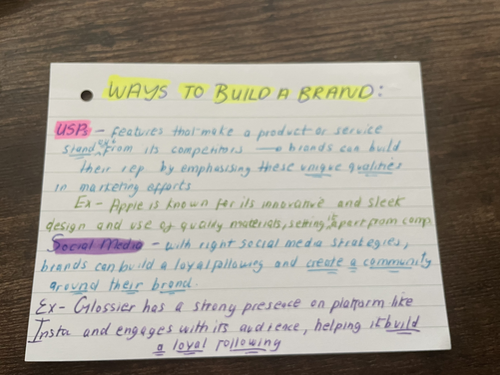 WAYS TO BUILD A BRAND:
USPs - features that make a product or service
stand out from its competitors → brands can build
their rep by emphasising these unique qualities
in marketing efforts
Ex - Apple is known for its innovative and sleek
design and use of quality materials, setting it apart from comp.
Social Media - with right social media strategies,
brands can build a loyal following and create a community
around their brand.
Ex - Glossier has a strong presence on platform like
Insta and engages with its audience, helping it build
a loyal following